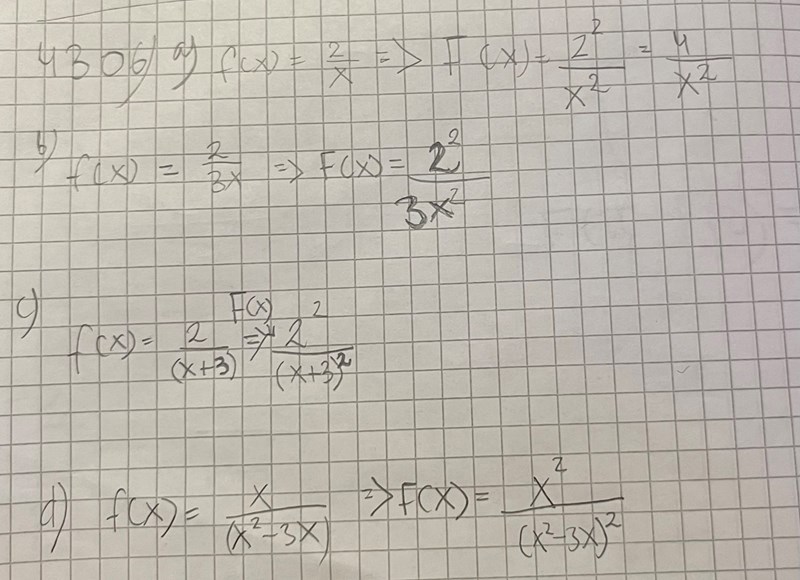 4306) a) f(x) = 2/x => F(x) = 2²/x² = 4/x²
b) f(x) = 2/3x => F(x) = 2²/3x²
c) f(x) = 2/(x+3) => F(x) 2²/(x+3)²
d) f(x) = x/(x²-3x) => F(x) = x²/(x²-3x)²